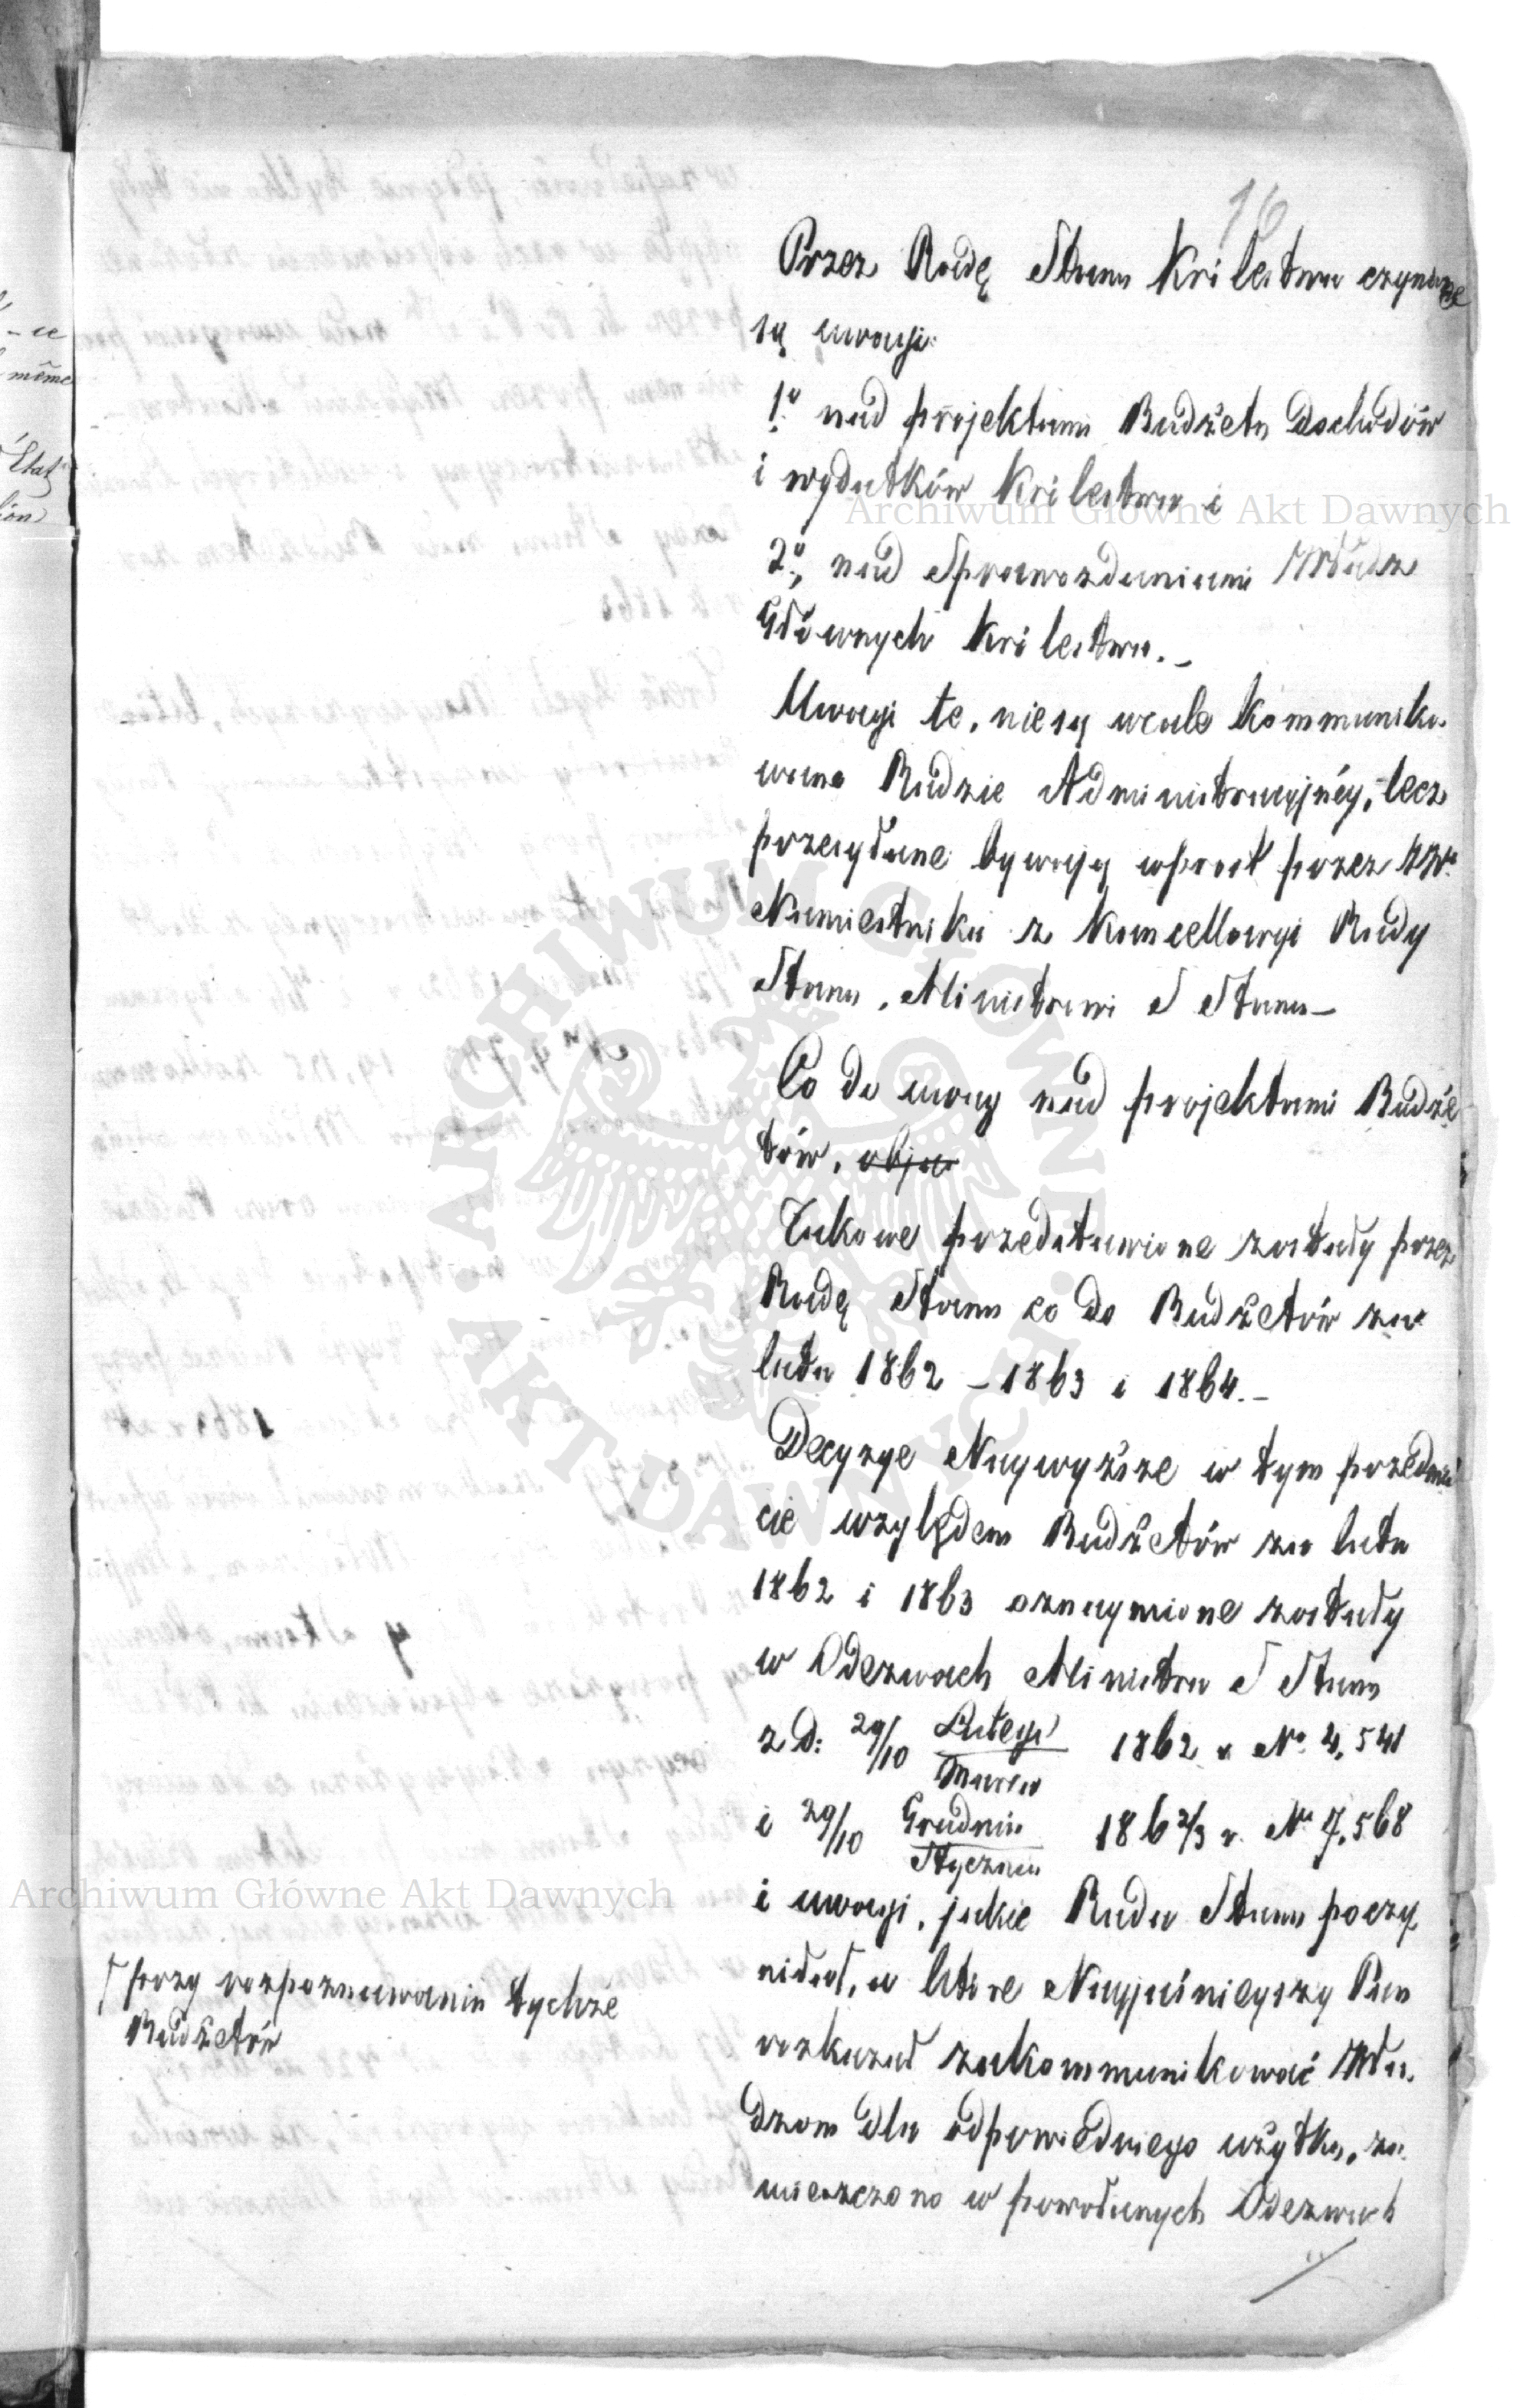 16
Przez Radę Stanu Królestwa czynione
są uwagi:
1.o nad projektami Budżetu Dochodów
i wydatków Królestwa i
2.o, nad Sprawozdaniami Władz
Głównych Królestwa. –
Uwagi te, nie są wcale kommuniko-
wane Radzie Administracyjnéy, lecz
przesyłane bywają wprost przez
Namiestnika z Kancellaryi Rady
Stanu, Ministrowi S Stanu –
Co do uwag nad projektami Budże
tów, obja
Takowe przedstawione zostały przez
Radę Stanu co do Budżetów za
lata 1862 – 1863 i 1864. –
Decyzye Naywyższe w tym przedmio
cie względem Budżetów za lata
1862 i 1863 oznaymione zostały
w Odezwach Ministra S Stanu
z d: 29/10 Lutego/Marca 1862 r No 4,541
i 29/10 Grudnia/Stycznia 186 2/3 r. No 7,568
i uwagi, jakie Rada Stanu poczy
niła, a które Nayjaśnieyszy Pan
rozkazał zakommunikować Wła-
dzom dla odpowiedniego użytku, za-
mieszczono w powołanych Odezwach
przy rozpoznawaniu tychże
Budżetów
même
État
Archiwum Główne Akt Dawnych
Archiwum Główne Akt Dawnych
ARCHIWUM GŁÓWNE AKT DAWNYCH